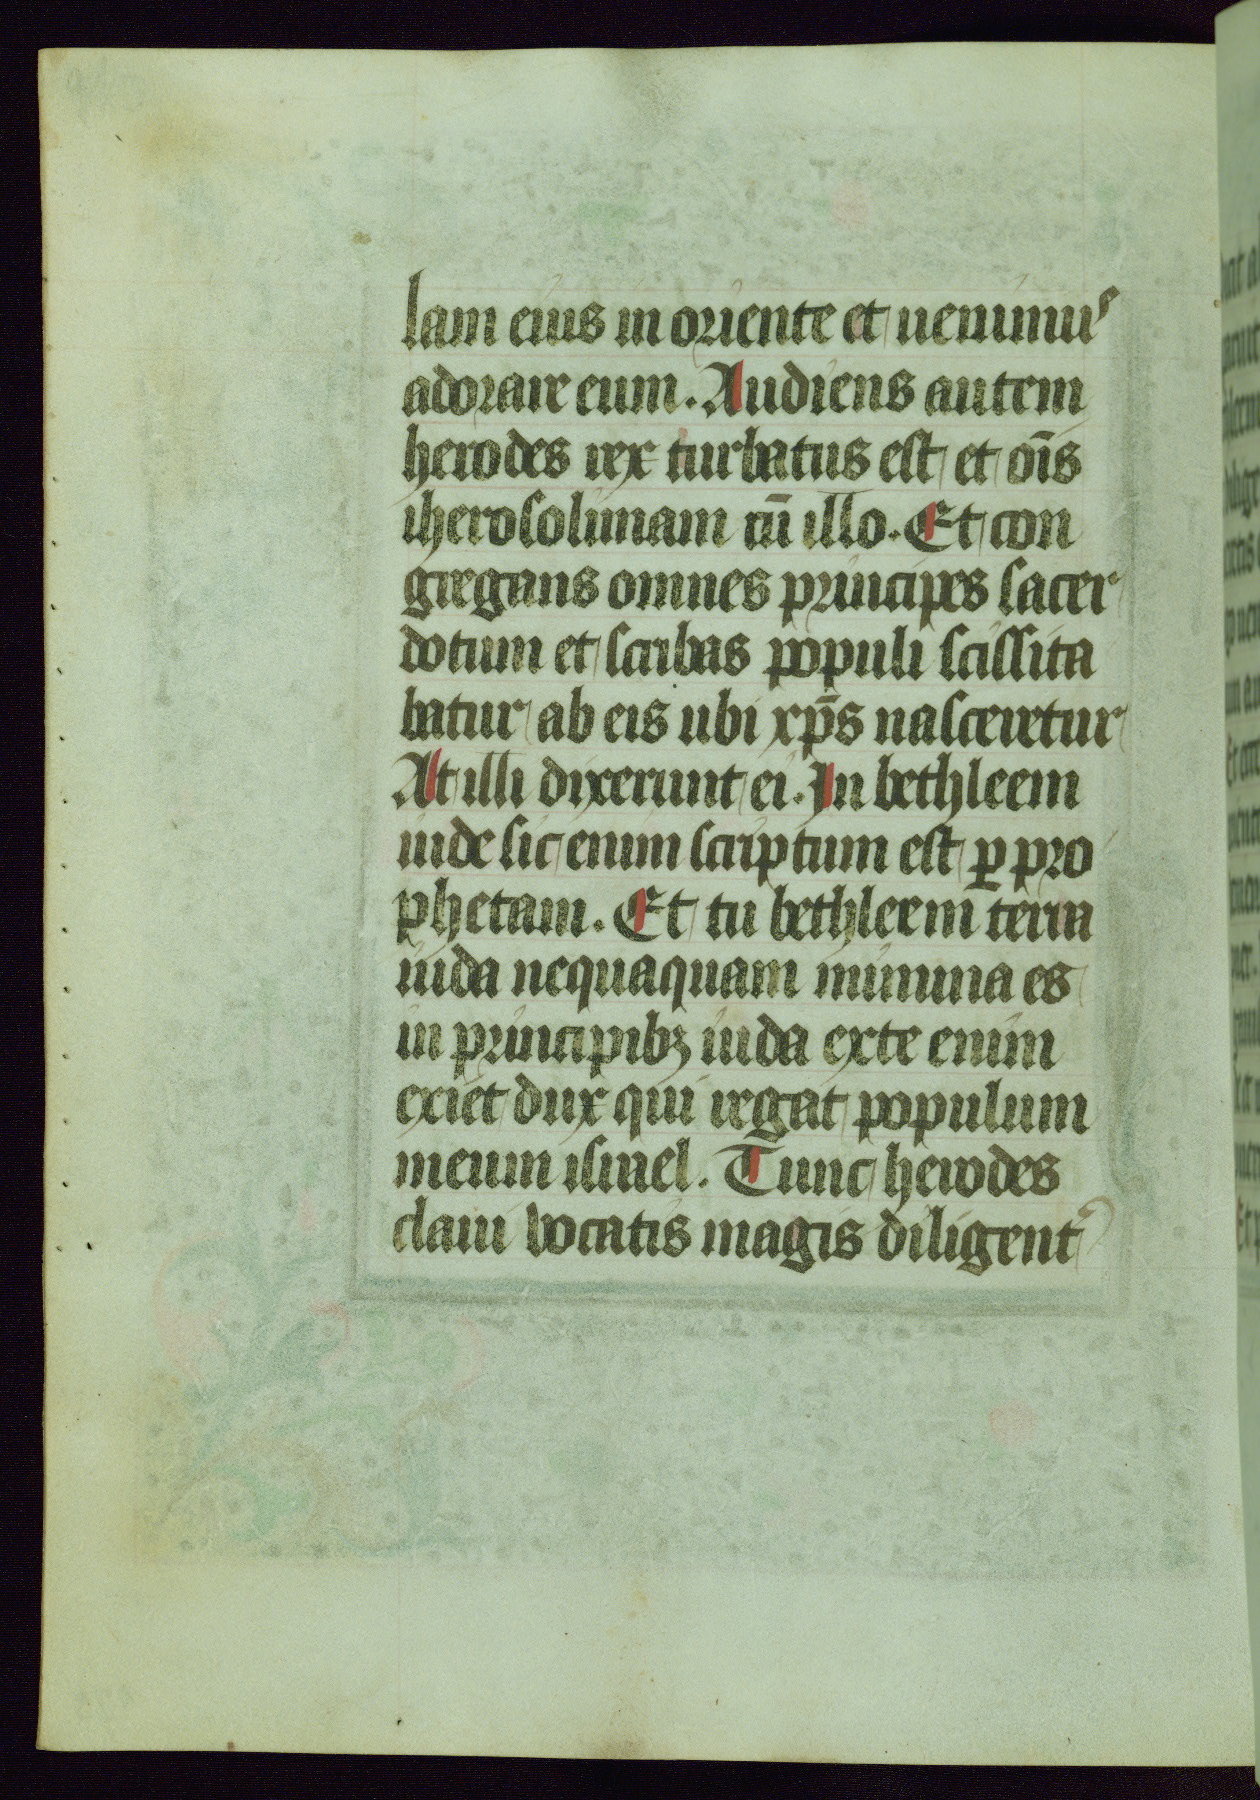 lam eius in oriente et uenimus
adorare eum. Audiens autem
herodes rex turbatus est et oīs
iherosolimam cū illo. Et con
gregans omnes principes sacer
dotum et scribas populi scissita
batur ab eis ubi xp̄s nasceretur
At illi dixerunt ei. In bethleem
iude sic enim scriptum est ꝑ pro
phetam. Et tu bethleem terra
iuda nequaquam minima es
in principibꝫ iuda exte enim
exiet dux qui regat populum
meum israel. Tunc herodes
clam vocatis magis diligent᾽